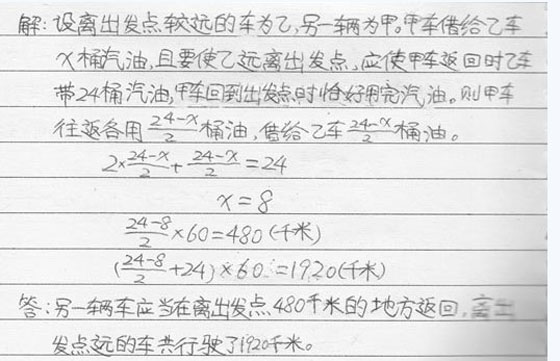 解:设离出发点较远的车为乙,另一辆为甲。甲车借给乙车
x桶汽油,且要使乙远离出发点,应使甲车返回时乙车
带24桶汽油,甲车回到出发点时恰好用完汽油。则甲车
往返各用(24-x)/2桶油,借给乙车(24-x)/2桶油。
2×(24-x)/2+(24-x)/2=24
x=8
(24-8)/2×60=480(千米)
((24-8)/2+24)×60=1920(千米)
答:另一辆车应当在离出发点480千米的地方返回,离出
发点远的车共行驶了1920千米。